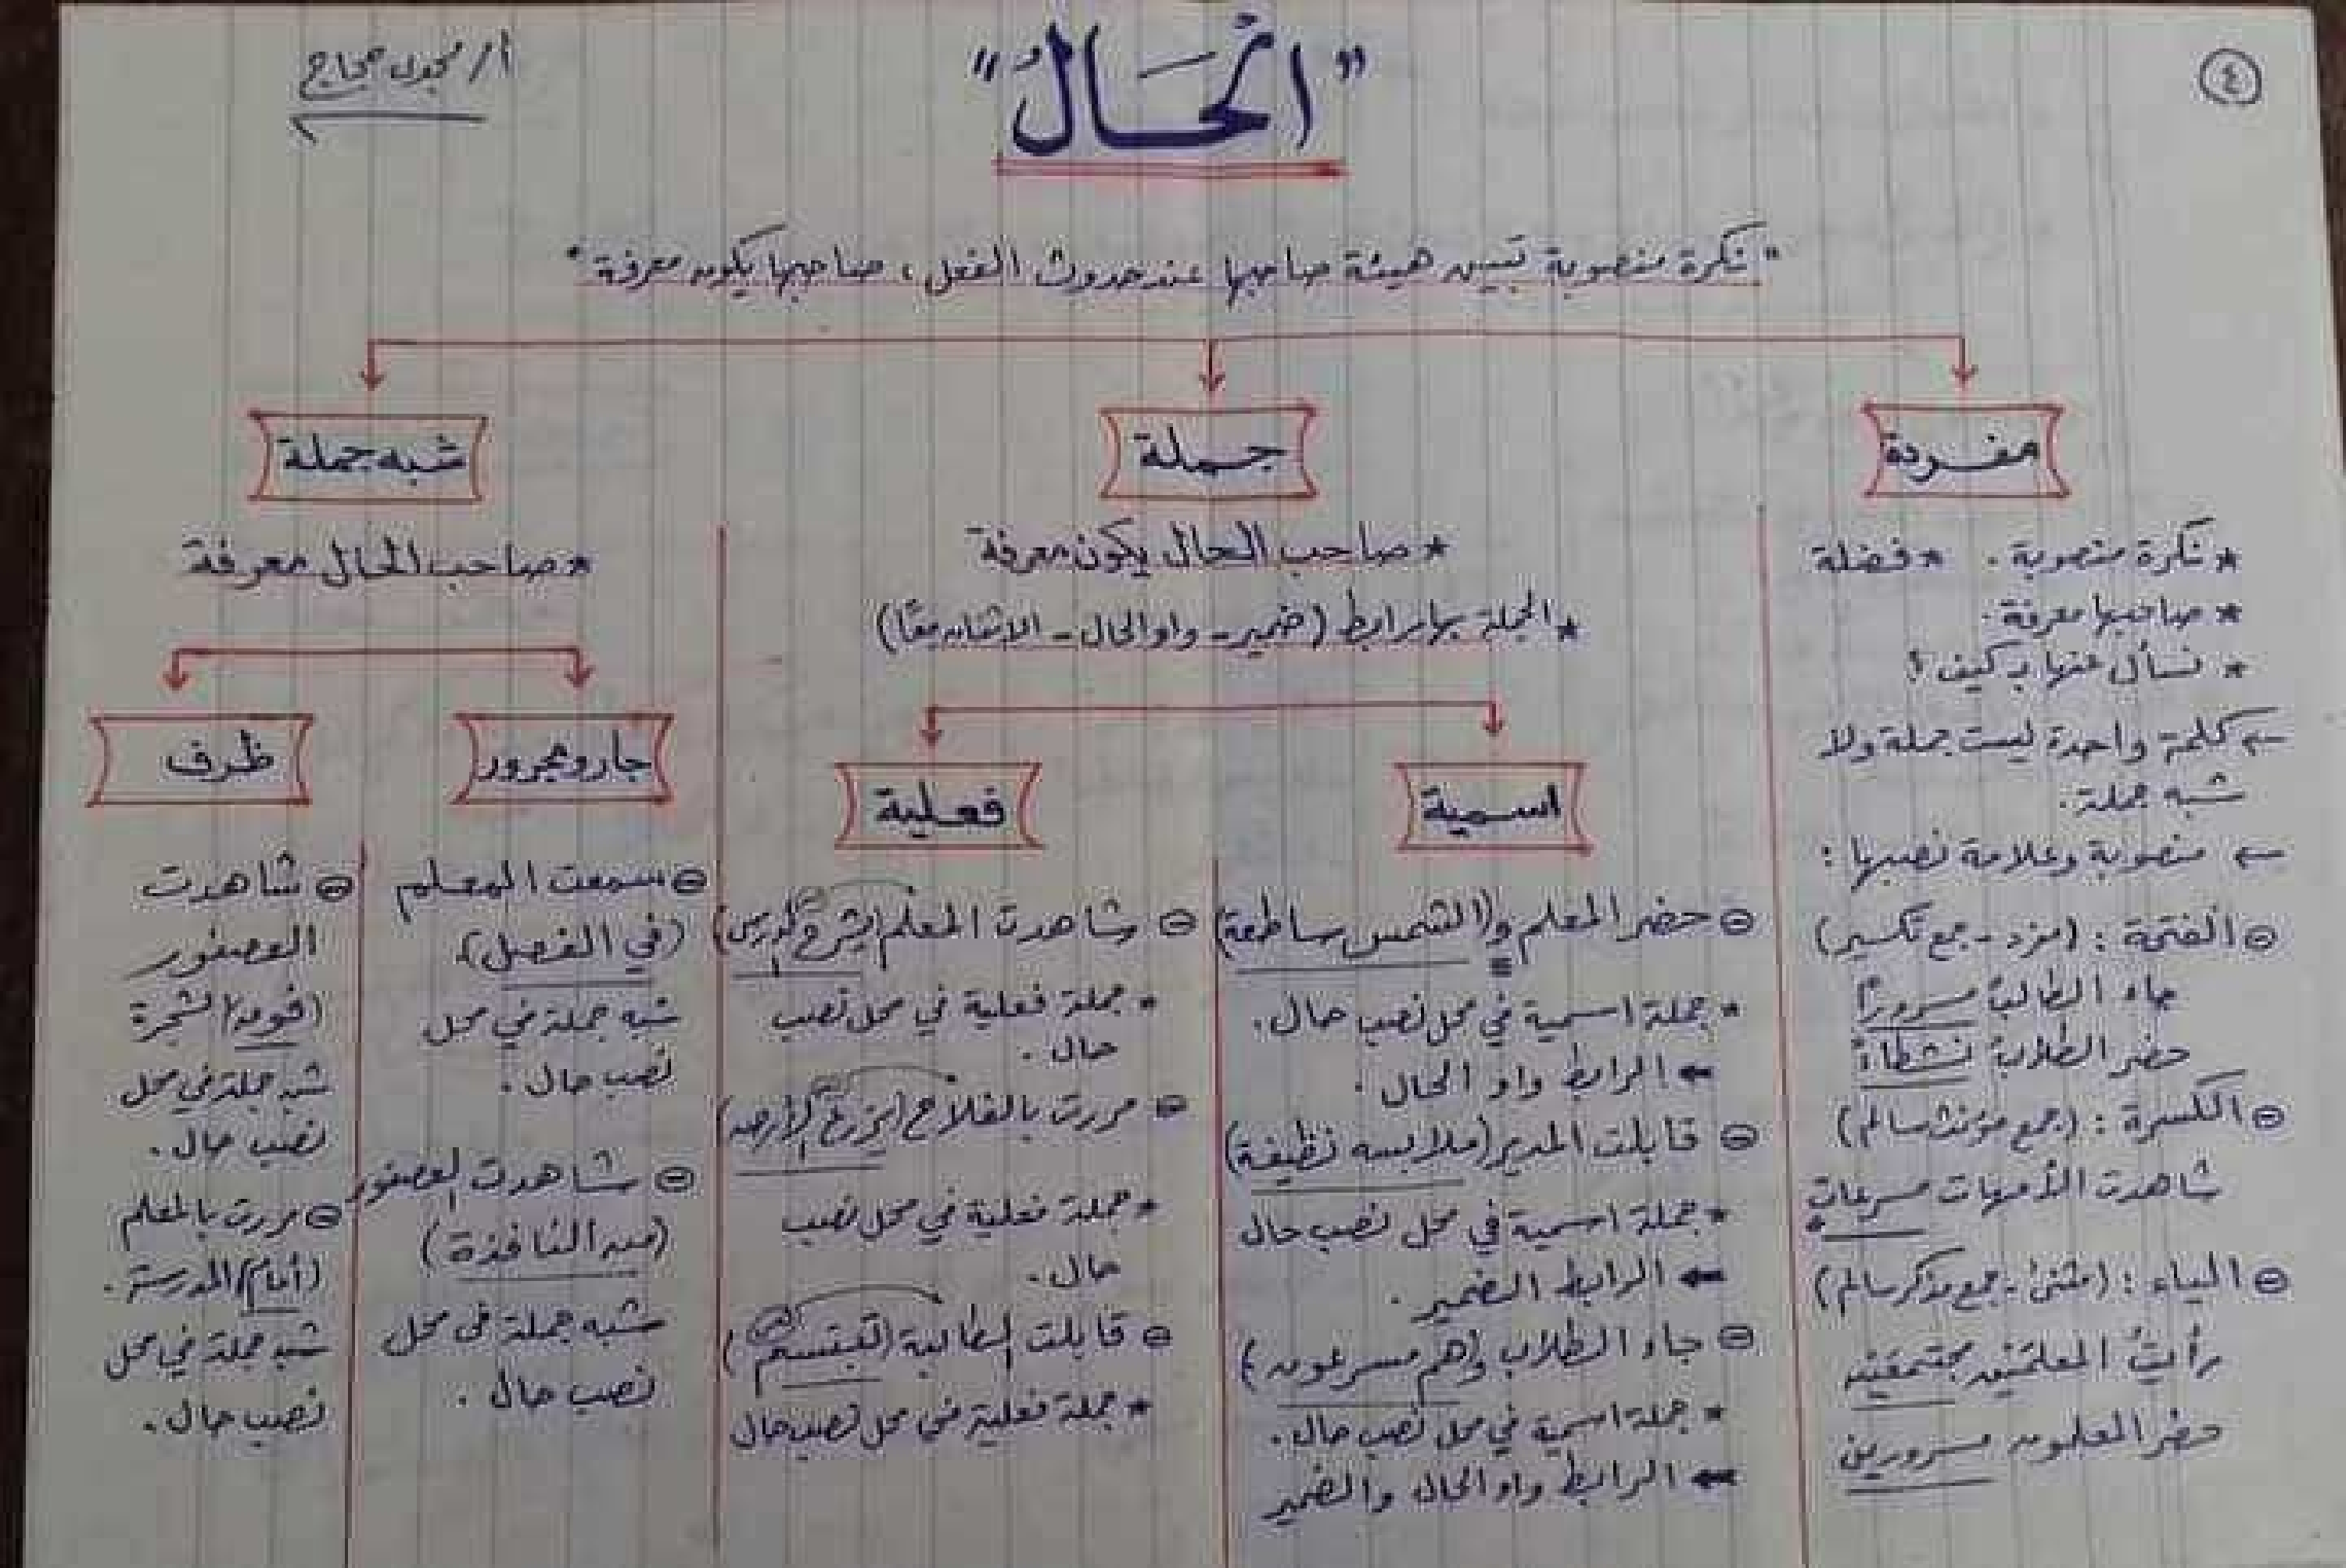 ٤
"الْحَالُ"
أ/ مجدى حجاج
"نكرة منصوبة تبين هيئة صاحبها عند حدوث الفعل، صاحبها يكون معرفة"
مفردة
* نكرة منصوبة. * فضلة
* صاحبها معرفة.
* نسأل عنها بـ كيف؟
كلمة واحدة ليست جملة ولا
شبه جملة.
منصوبة وعلامة نصبها:
الفتحة: (مفرد - جمع تكسير)
جاء الطالبُ مسرورًا
حضر الطلابُ نشطاءً
الكسرة: (جمع مؤنث سالم)
شاهدت الأمهات مسرعاتٍ
الياء: (مثنى - جمع مذكر سالم)
رأيتُ المعلمَين مجتمعَين
حضر المعلمون مسرورين
جملة
* صاحب الحال يكون معرفة
* الجملة بها رابط (ضمير - واو الحال - الاثنان معًا)
اسمية
حضر المعلم و(الشمس ساطعة)
* جملة اسمية في محل نصب حال.
الرابط واو الحال.
قابلت المدير (ملابسه نظيفة)
* جملة اسمية في محل نصب حال
الرابط الضمير.
جاء الطلاب (وهم مسرعون)
* جملة اسمية في محل نصب حال.
الرابط واو الحال والضمير
فعلية
شاهدت المعلم (يشرح الدرس)
* جملة فعلية في محل نصب
حال.
مررت بالفلاح (يزرع الأرض)
* جملة فعلية في محل نصب
حال.
قابلت الطالبة (تبتسم)
* جملة فعلية في محل نصب حال
شبه جملة
* صاحب الحال معرفة
جار ومجرور
سمعت المعلم
(في الفصل).
شبه جملة في محل
نصب حال.
شاهدت العصفور
(من النافذة)
شبه جملة في محل
نصب حال.
ظرف
شاهدت
العصفور
(فوق) الشجرة
شبه جملة في محل
نصب حال.
مررت بالمعلم
(أمام) المدرسة.
شبه جملة في محل
نصب حال.